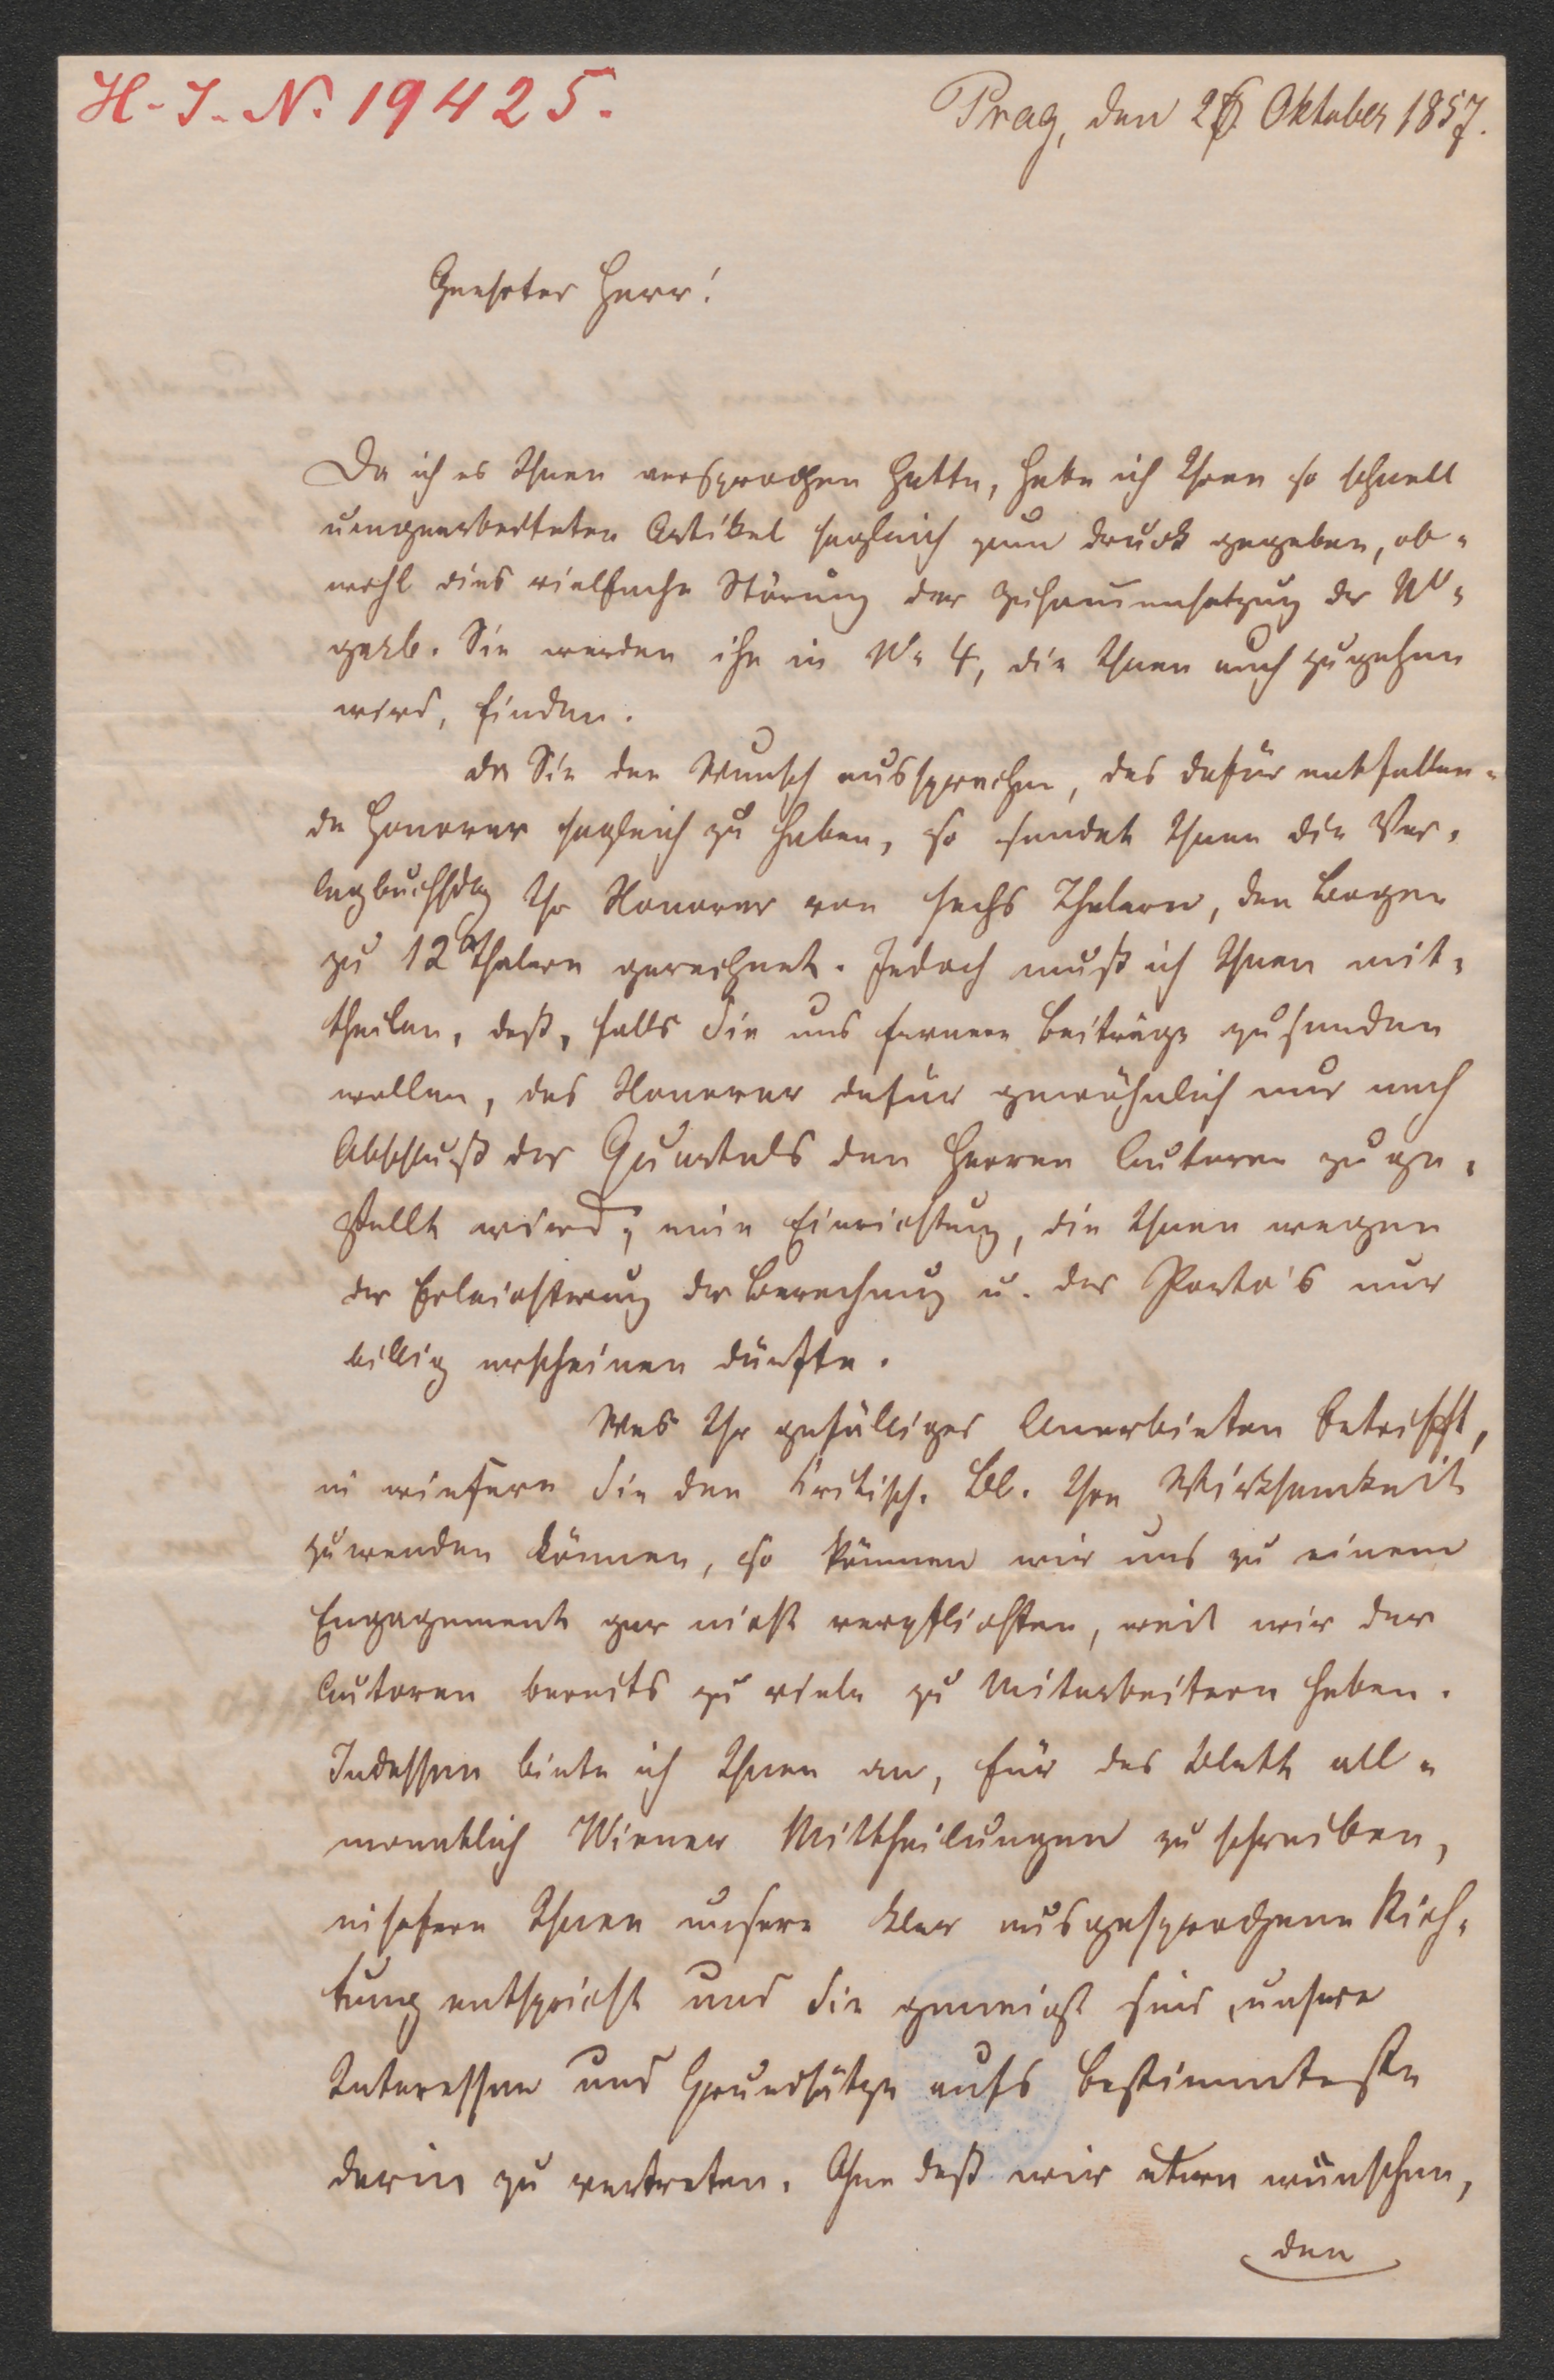 H.-I.-N. 19425.
Prag, den 26. Oktober 1857.
Geehrter Herr!
Da ich es Ihnen versprochen hatte, habe ich Ihren so schnell
umgearbeiteten Artikel sogleich zum Druck gegeben, ob-
wohl dies vielfache Störung der Zusammensetzung der Nr
gab. Sie werden ihn in Nr 4, die Ihnen auch zugehen
wird, finden.
Da Sie den Wunsch aussprechen, das dafür entfallen-
de Honorar sogleich zu haben, so sendet Ihnen die Ver-
lagbuchhdlg Ihr Honorar von sechs Thalern, den Bogen
zu 12 Thalern gerechnet. Jedoch muß ich Ihnen mit-
theilen, daß, falls Sie uns fernere Beiträge zusenden
wollen, das Honorar dafür gewöhnlich nur nach
Abschluß des Quartals den Herren Autoren zuge-
stellt wird; eine Einrichtung, die Ihnen wegen
der Erleichterung der Berechnung u. des Porto's nur
billig erscheinen dürfte.
Was Ihr gefälliges Anerbieten betrifft,
in wiefern Sie den kritisch. Bl. Ihre Wirksamkeit
zuwenden können, so können wir uns zu einem
Engagement gar nicht verpflichten, weil wir der
Autoren bereits zu viele zu Mitarbeitern haben.
Indessen biete ich Ihnen an, für das Blatt all-
monatlich Wiener Mittheilungen zu schreiben,
insofern Ihnen unsere klar ausgesprochene Rich-
tung entspricht und Sie geneigt sind, unsere
Interessen und Grundsätze aufs bestimmteste
darin zu vertreten. Ohne daß wir etwa wünschen,
den